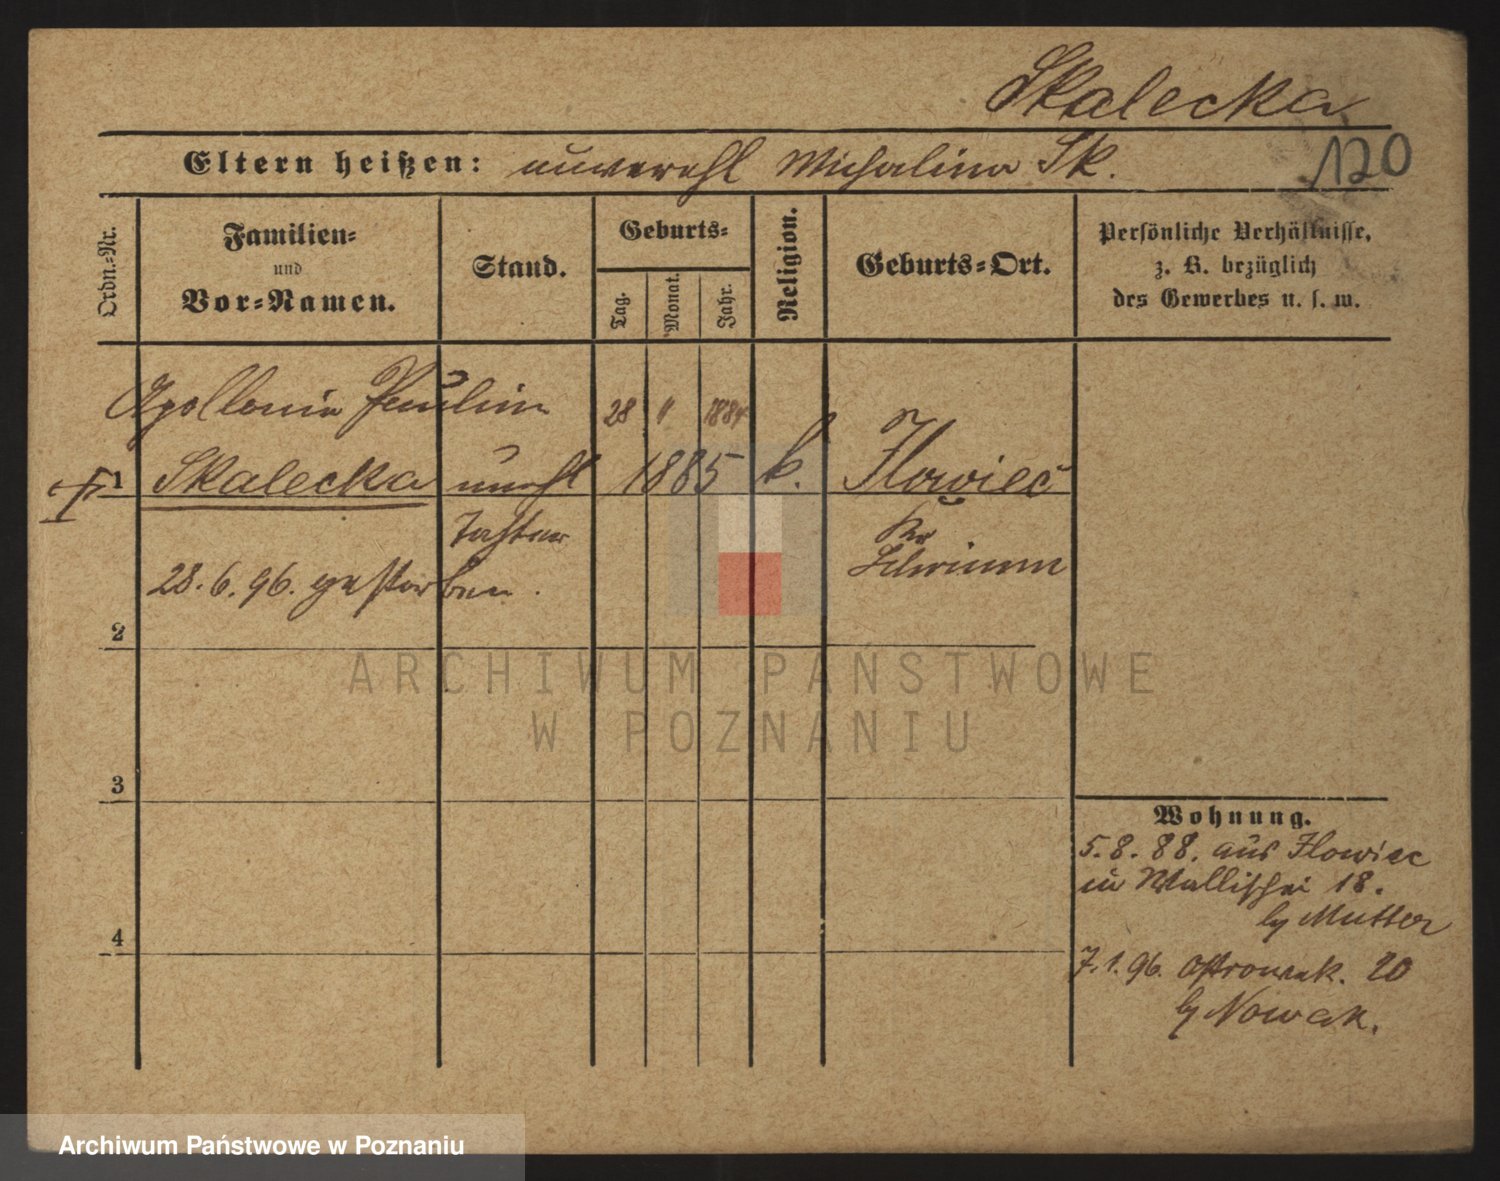 Skalecka
120
Eltern heißen: unverehl Michalina Sk.
Ordn.-Nr.
Familien-
und
Vor-Namen.
Stand.
Geburts-
Tag.
Monat.
Jahr.
Religion.
Geburts-Ort.
Persönliche Verhältnisse,
z. B. bezüglich
des Gewerbes u. s. w.
Apollonia Paulina 28 1884
1 Skalecka unehl 1885 k. Ilowiec
Tochter Kr
Schrimm
28.6.96. gestorben.
2
3
4
Wohnung.
5.8.88. aus Ilowiec
in Wallischei 18.
by Mutter
7.1.96. Ostrowek. 20
by Nowak.
ARCHIWUM PAŃSTWOWE
W POZNANIU
Archiwum Państwowe w Poznaniu